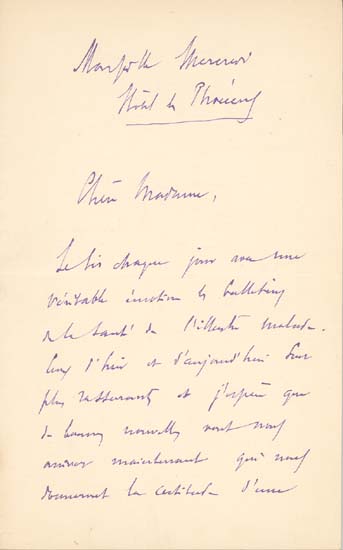 Marseille Mercredi
Hôtel du Phocéens
Chère Madame,
Je lis chaque jour avec une
véritable émotion les bulletins
de la santé de l'illustre malade.
Ceux d'hier et d'aujourd'hui sont
plus rassurants et j'espère que
de bonnes nouvelles vont nous
arriver maintenant qui nous
donneront la certitude d'une